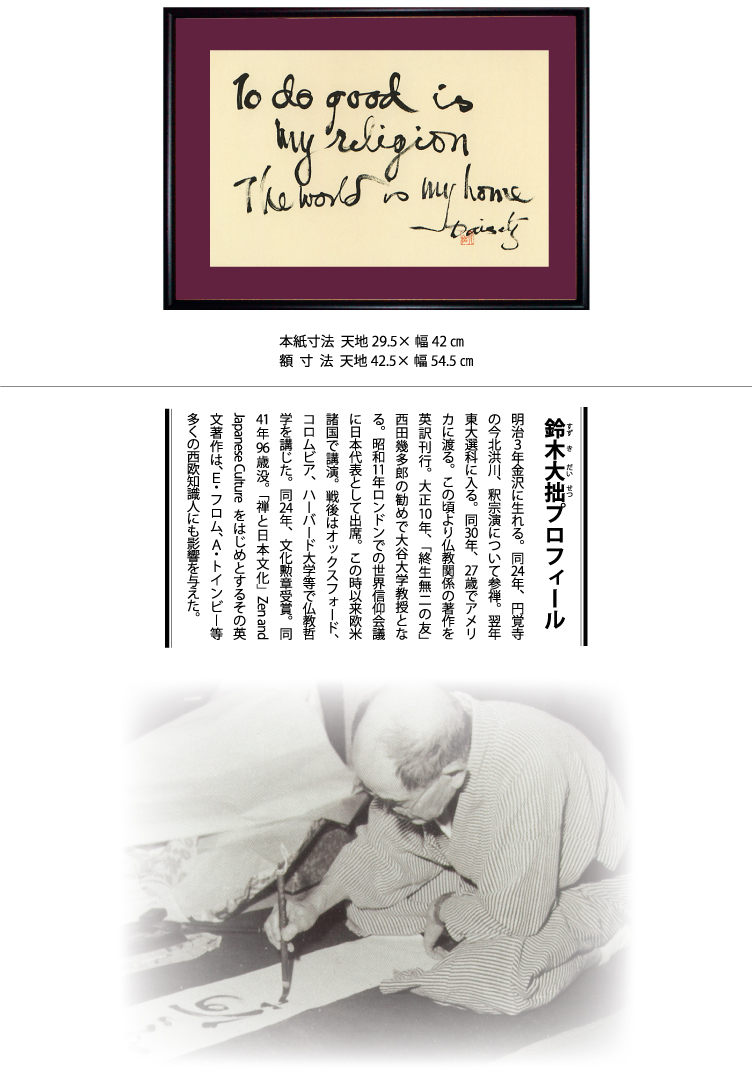 To do good is
my religion
The world is my home
Daisetz
本紙寸法 天地 29.5× 幅 42 ㎝
額 寸 法 天地 42.5× 幅 54.5 ㎝
鈴木大拙プロフィール
すず き だい せつ
明治3年金沢に生れる。同24年、円覚寺
の今北洪川、釈宗演について参禅。翌年
東大選科に入る。同30年、27歳でアメリ
カに渡る。この頃より仏教関係の著作を
英訳刊行。大正10年、「終生無二の友」
西田幾多郎の勧めで大谷大学教授とな
る。昭和11年ロンドンでの世界信仰会議
に日本代表として出席。この時以来欧米
諸国で講演。戦後はオックスフォード、
コロムビア、ハーバード大学等で仏教哲
学を講じた。同24年、文化勲章受賞。同
41年96歳没。「禅と日本文化」Zen and
Japanese Culture をはじめとするその英
文著作は、E・フロム、A・トインビー等
多くの西欧知識人にも影響を与えた。